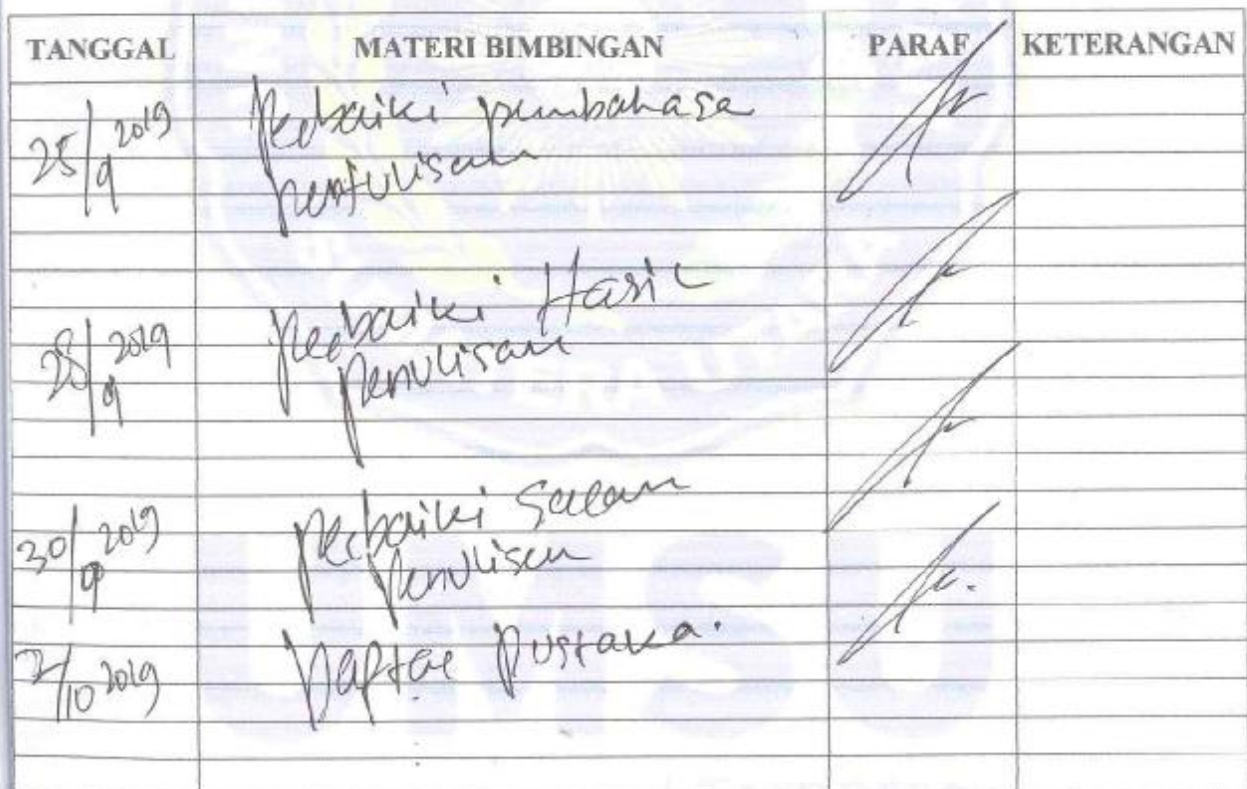 TANGGAL MATERI BIMBINGAN PARAF KETERANGAN
25/9 2019 Perbaiki pembahasa
penulisan
28/9 2019 Perbaiki Hasil
penulisan
30/9 2019 Perbaiki Saran
Penulisan
2/10 2019 Daftar Pustaka.
UMSU